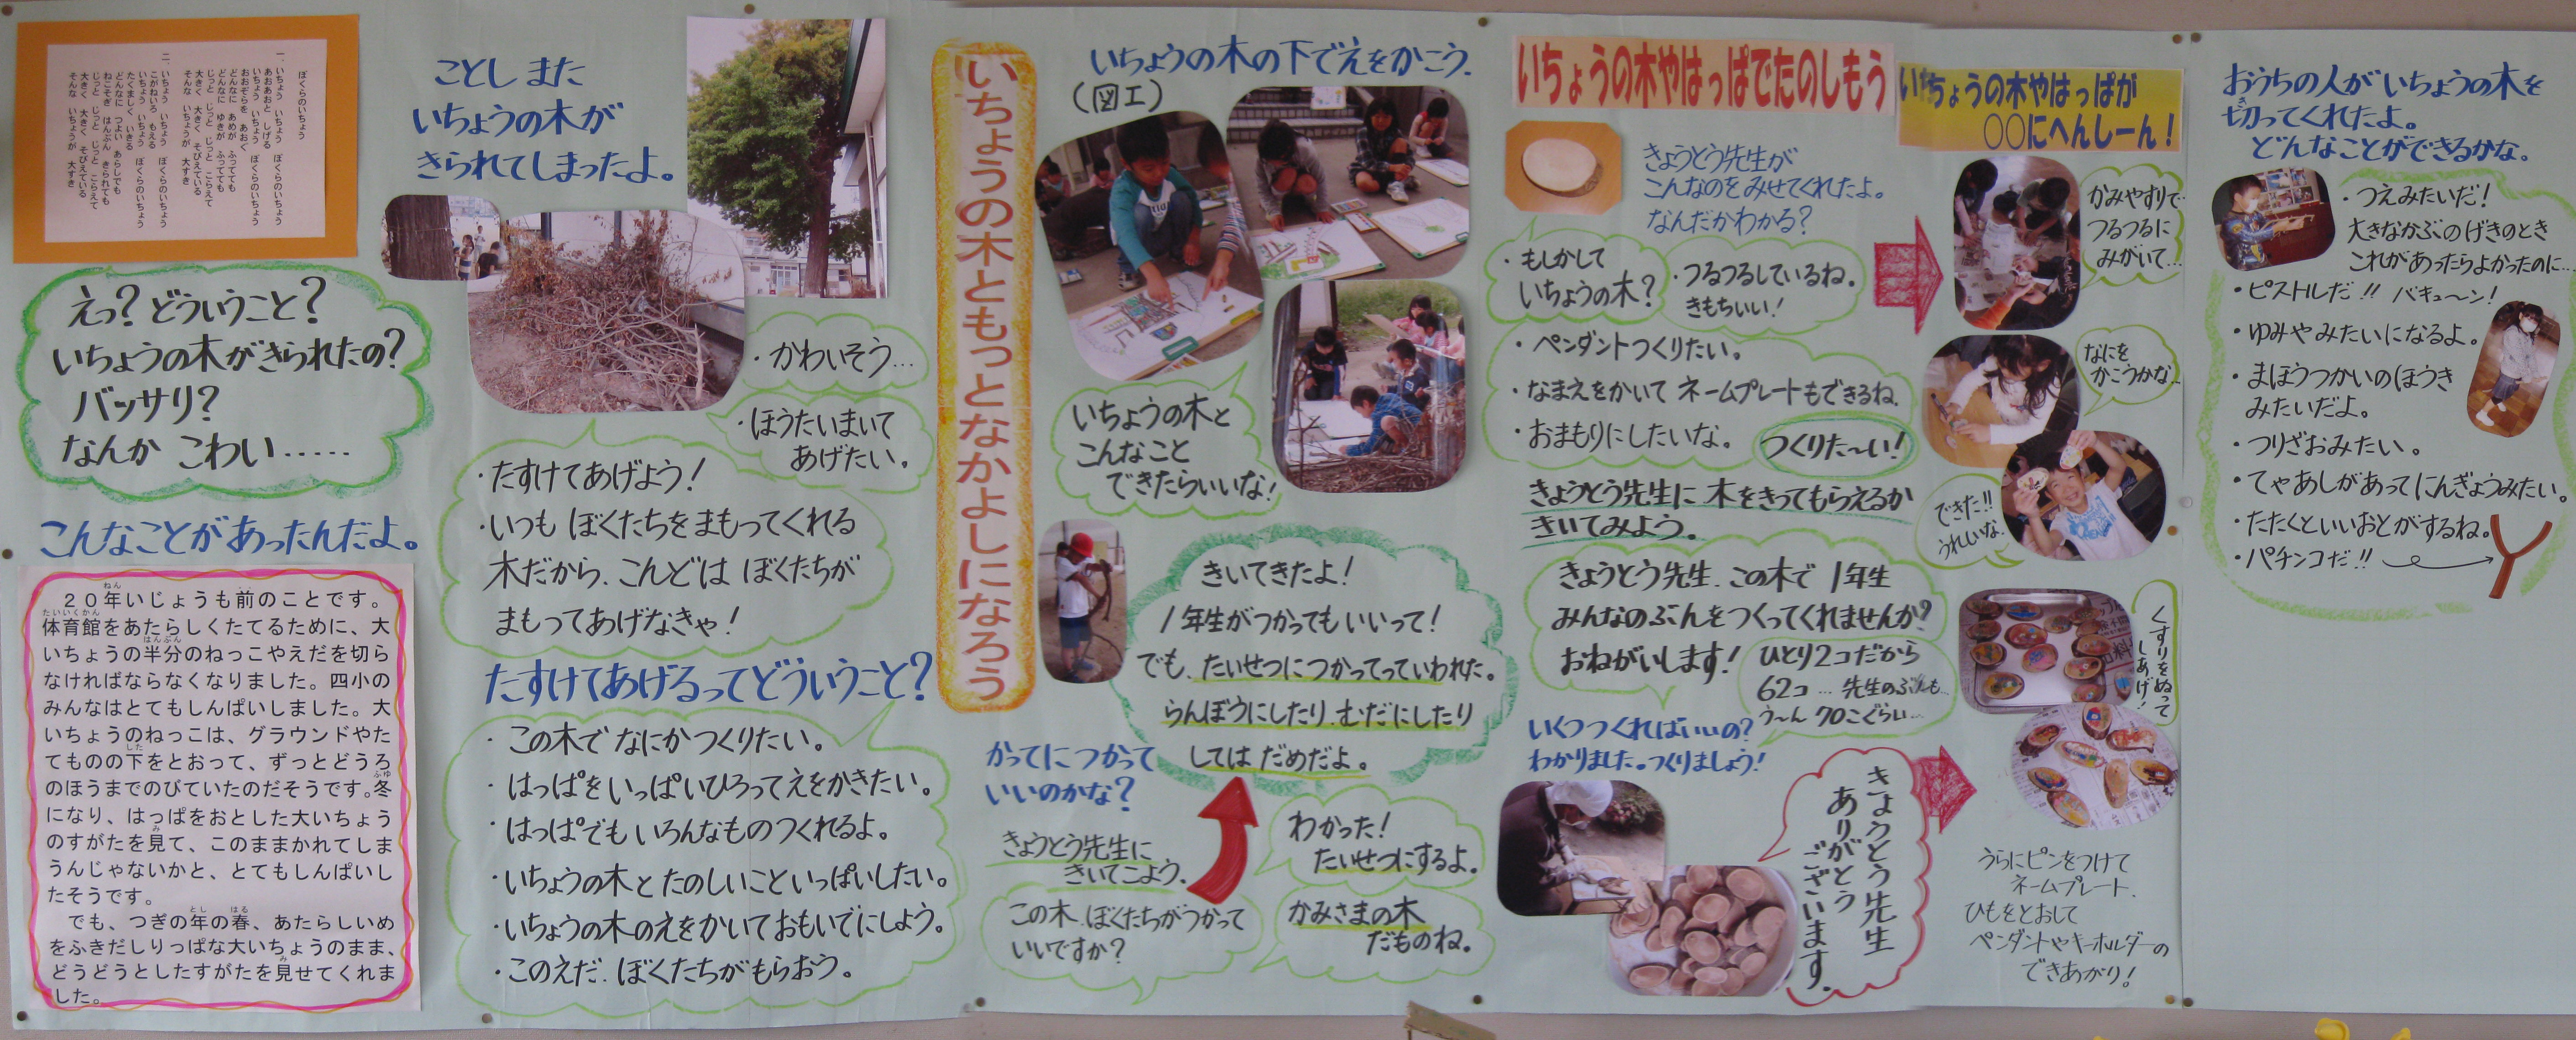 ぼくらのいちょう
一、いちょう いちょう ぼくらのいちょう
あおあおと しげる
いちょう いちょう ぼくらのいちょう
おおぞらを あおぐ
どんなに あめが ふってても
どんなに ゆきが ふってても
じっと じっと じっと こらえて
大きく 大きく そびえている
そんな いちょうが 大すき
二、いちょう いちょう ぼくらのいちょう
こがねいろ もえる
いちょう いちょう ぼくらのいちょう
たくましく いきる
どんなに つよい あらしでも
ねこそぎ はんぶん きられても
じっと じっと じっと こらえて
大きく 大きく そびえている
そんな いちょうが 大すき
えっ?どういうこと?
いちょうの木がきられたの?
バッサリ?
なんか こわい……
こんなことがあったんだよ。
20年いじょうも前のことです。
体育館をあたらしくたてるために、大
いちょうの半分のねっこやえだを切ら
なければならなくなりました。四小の
みんなはとてもしんぱいしました。大
いちょうのねっこは、グラウンドやた
てものの下をとおって、ずっとどうろ
のほうまでのびていたのだそうです。冬
になり、はっぱをおとした大いちょう
のすがたを見て、このままかれてしま
うんじゃないかと、とてもしんぱいし
たそうです。
でも、つぎの年の春、あたらしいめ
をふきだしりっぱな大いちょうのまま、
どうどうとしたすがたを見せてくれま
した。
ことし また
いちょうの木が
きられてしまったよ。
・かわいそう…
・ほうたいまいて
あげたい。
・たすけてあげよう!
・いつも ぼくたちをまもってくれる
木だから、こんどは ぼくたちが
まもってあげなきゃ!
たすけてあげるってどういうこと?
・この木で なにかつくりたい。
・はっぱをいっぱいひろってえをかきたい。
・はっぱでもいろんなものつくれるよ。
・いちょうの木とたのしいこといっぱいしたい。
・いちょうの木のえをかいておもいでにしよう。
・このえだ、ぼくたちがもらおう。
いちょうの木ともっとなかよしになろう
いちょうの木の下でえをかこう。
(図工)
いちょうの木と
こんなこと
できたらいいな!
きいてきたよ!
1年生がつかってもいいって!
でも、たいせつにつかってっていわれた。
らんぼうにしたり、むだにしたり
しては だめだよ。
かってにつかって
いいのかな?
きょうとう先生に
きいてこよう。
この木、ぼくたちがつかって
いいですか?
わかった!
たいせつにするよ。
かみさまの木
だものね。
いちょうの木やはっぱでたのしもう
きょうとう先生が
こんなのをみせてくれたよ。
なんだかわかる?
・もしかして
いちょうの木?
・つるつるしているね。
きもちいい!
・ペンダントつくりたい。
・なまえをかいて ネームプレートもできるね。
・おまもりにしたいな。
つくりた~い!
きょうとう先生に 木をきってもらえるか
きいてみよう。
きょうとう先生、この木で 1年生
みんなのぶんをつくってくれませんか?
おねがいします!
ひとり2コだから
62コ…先生のぶんも…
う~ん 70こぐらい…
いくつつくればいいの?
わかりました。つくりましょう!
きょうとう先生
ありがとう
ございます。
いちょうの木やはっぱが
○○にへんしーん!
かみやすりで
つるつるに
みがいて…
なにを
かこうかな…
できた!!
うれしいな。
くすりをぬって
しあげ!
うらにピンをつけて
ネームプレート、
ひもをとおして
ペンダントやキーホルダーの
できあがり!
おうちの人がいちょうの木を
切ってくれたよ。
どんなことができるかな。
・つえみたいだ!
大きなかぶのげきのとき
これがあったらよかったのに…
・ピストルだ!! バキュ~ン!
・ゆみやみたいになるよ。
・まほうつかいのほうき
みたいだよ。
・つりざおみたい。
・てやあしがあってにんぎょうみたい。
・たたくといいおとがするね。
・パチンコだ!!